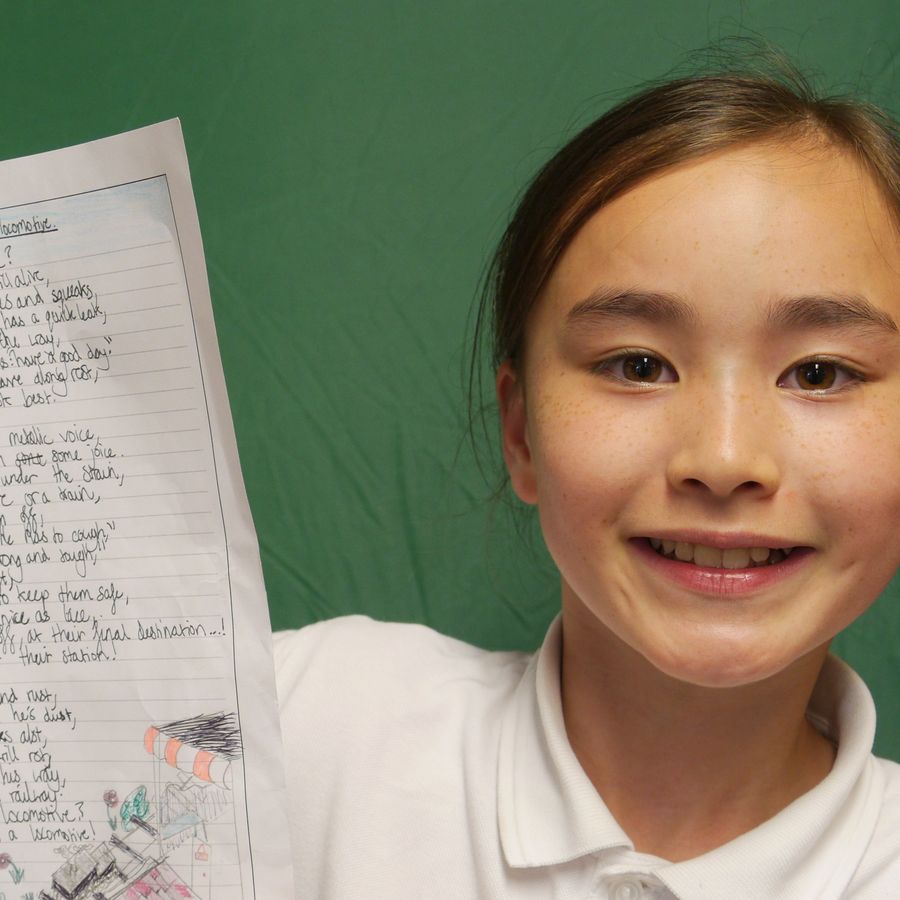 locomotive.
?
alive,
and squeaks,
has a quick leak,
the way,
have a good day."
along rest,
best.
metallic voice,
some joice.
under the strain,
or a train,
off,
he has to cough,"
and tough,"
to keep them safe,
as
at their final destination...!
their station!
and rust,
he's dust,
alot,
will rot,
his way,
railway.
locomotive?
a locomotive!